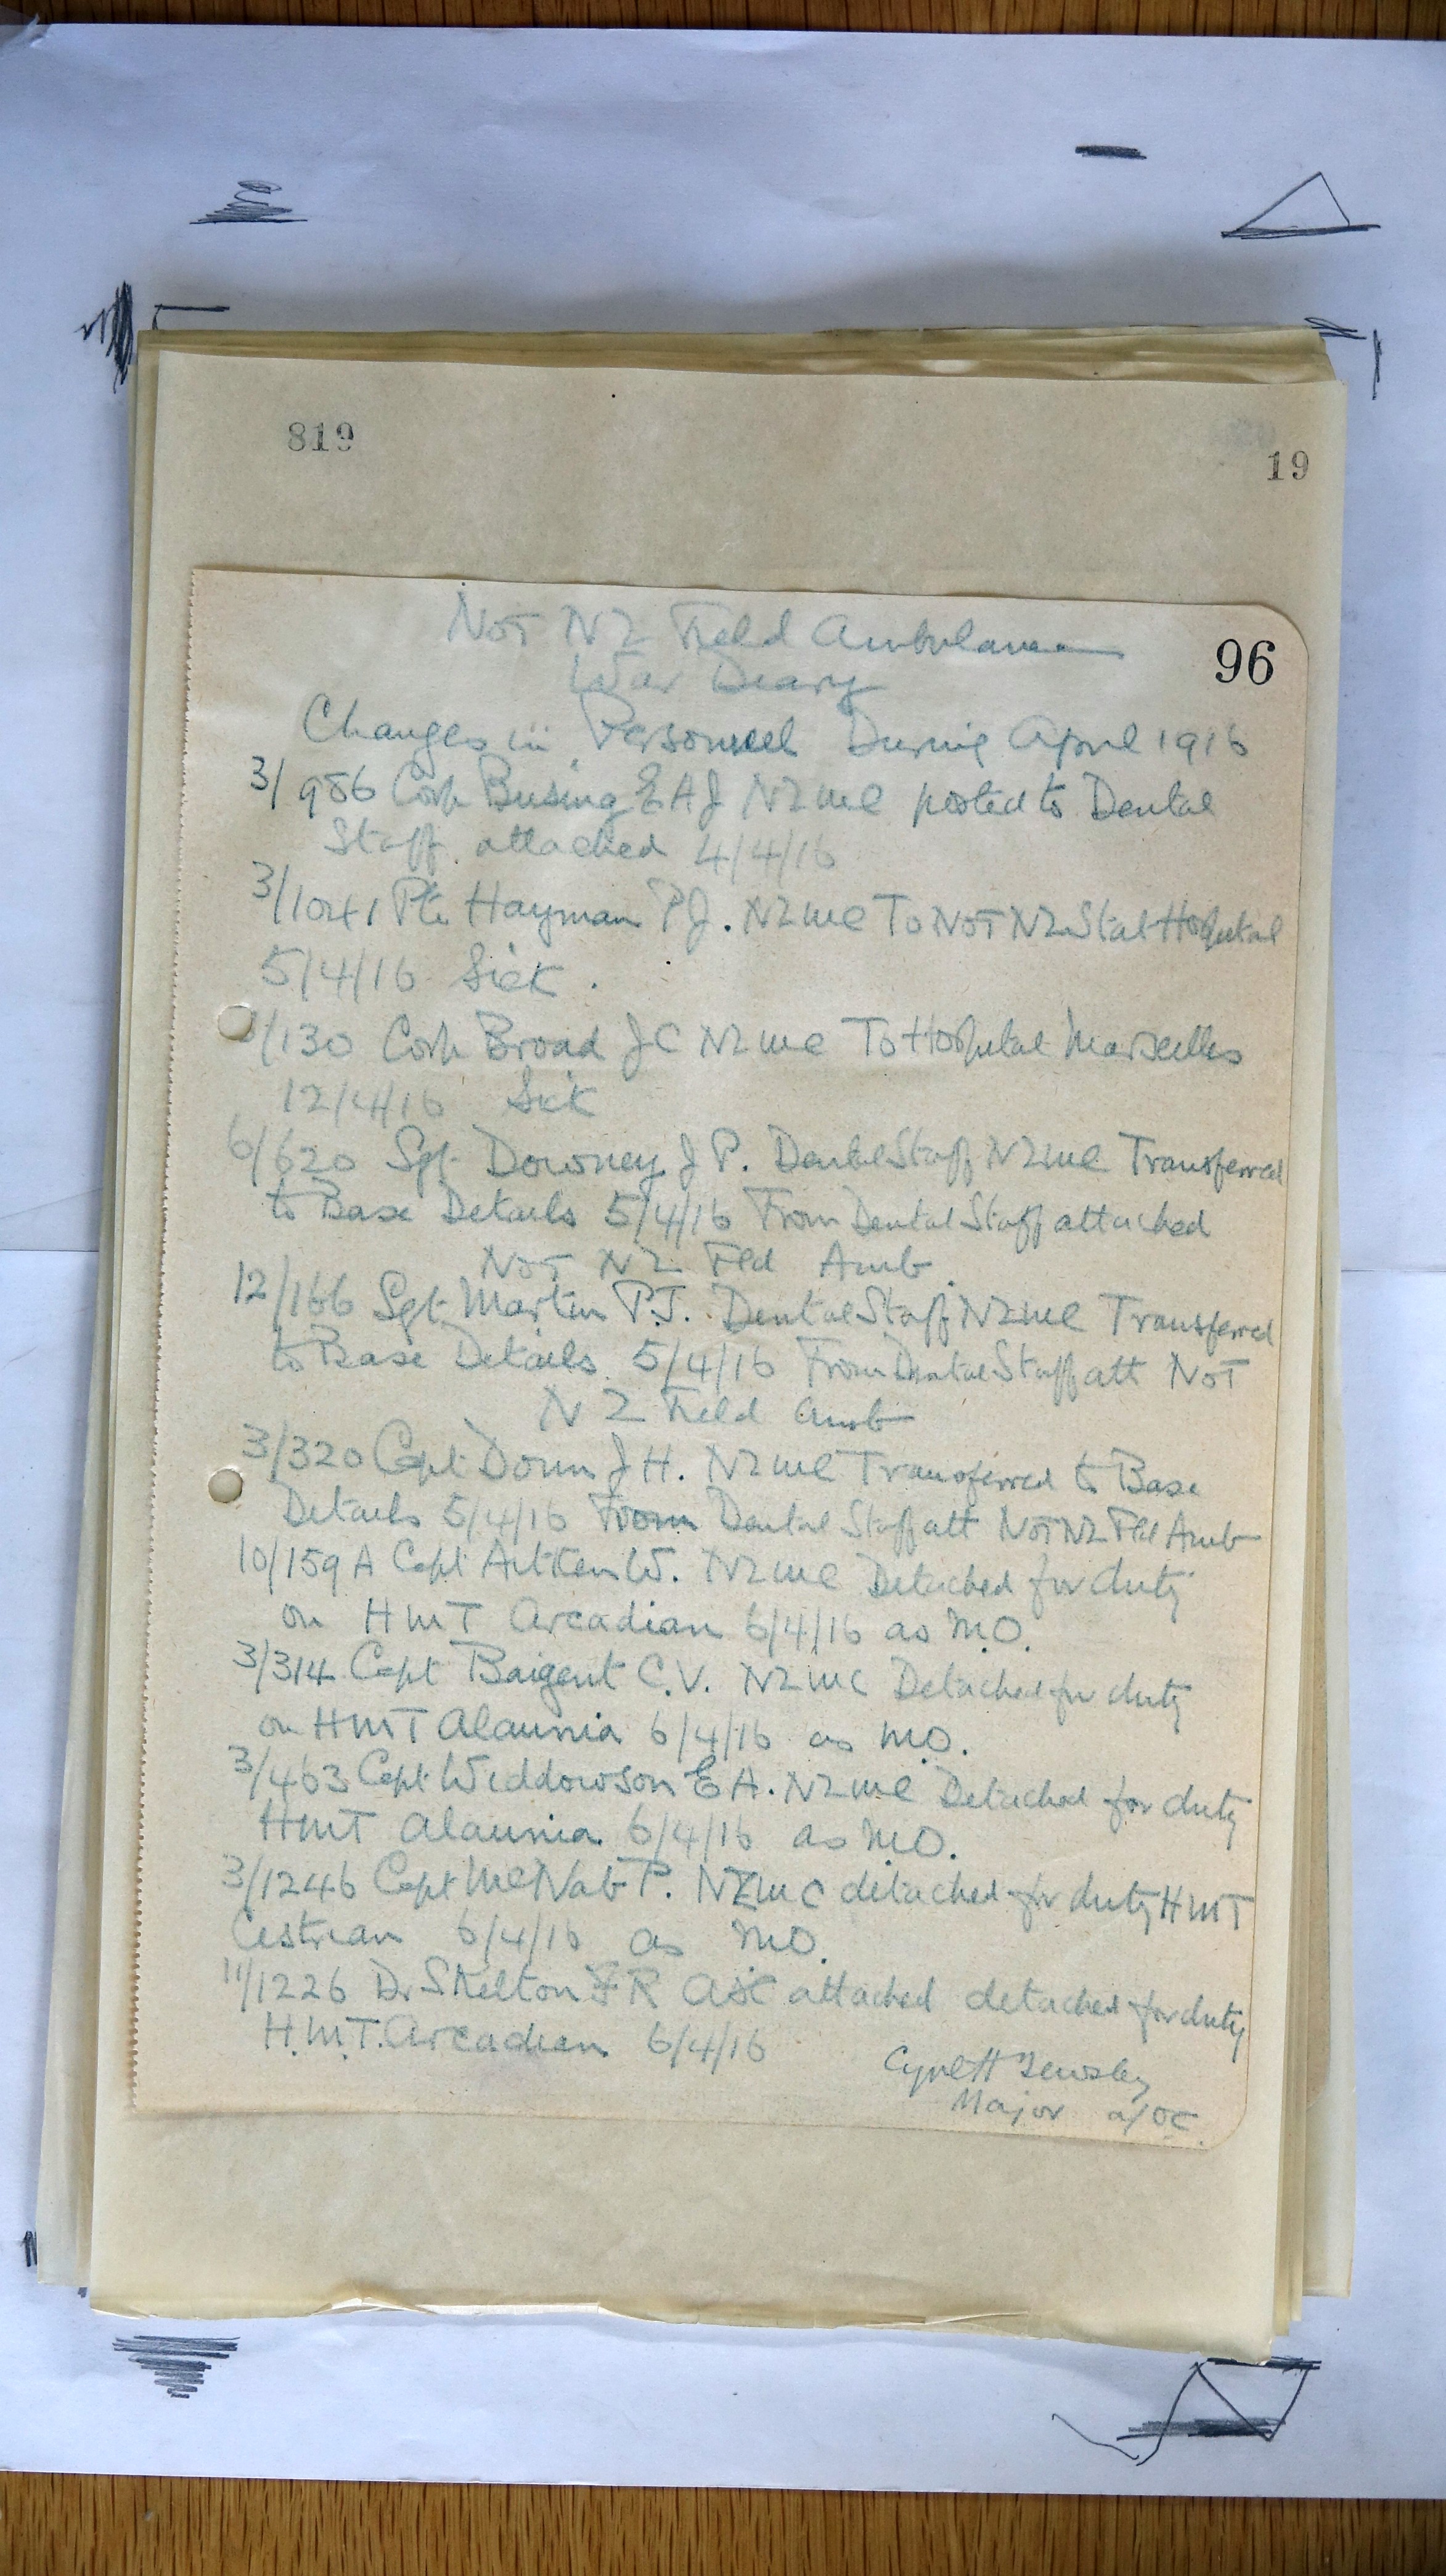 819
19
96
Not NZ Field Ambulance
War Diary
Changes in Personnel During April 1916
3/986 Corp Busing E A J NZMC posted to Dental
Staff attached 4/4/16
3/1041 Pte Hayman P J. NZMC To Not NZ Stat Hospital
5/4/16 Sick.
/130 Corp Broad J C NZMC To Hospital Marseilles
12/4/16 Sick
6/620 Sgt Downey J P. Dental Staff NZMC Transferred
to Base Details 5/4/16 From Dental Staff attached
Not NZ Fld Amb.
12/166 Sgt Martin P.J. Dental Staff NZMC Transferred
to Base Details. 5/4/16 From Dental Staff att Not
NZ Field Amb
3/320 Capt Donn J H. NZMC Transferred to Base
Details 5/4/16 From Dental Staff att Not NZ Fld Amb
10/159 A Capt Aitken W. NZMC Detached for duty
on HMT Arcadian 6/4/16 as M.O.
3/314 Capt Baigent C.V. NZMC Detached for duty
on HMT Alaunia 6/4/16 as M.O.
3/463 Capt Widdowson E A. NZMC Detached for duty
HMT Alaunia. 6/4/16 as M.O.
3/1246 Capt McNab P. NZMC detached for duty HMT
Cestrian 6/4/16 as M.O.
11/1226 Dr Skelton F R ASC attached detached for duty
H.M.T. Arcadian 6/4/16
Major a/OC.